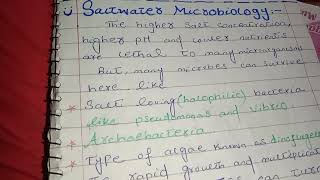 Saltwater Microbiology:-
The higher salt concentration,
higher pH and lower nutrients
are lethal to many microorganisms
But, many microbes can survive
here like
* Salt loving (halophilic) bacteria
like pseudomonas and vibrio
* Archaebacteria
* Type of algae known as dinoflagell
rapid growth and multiplicat
can tur